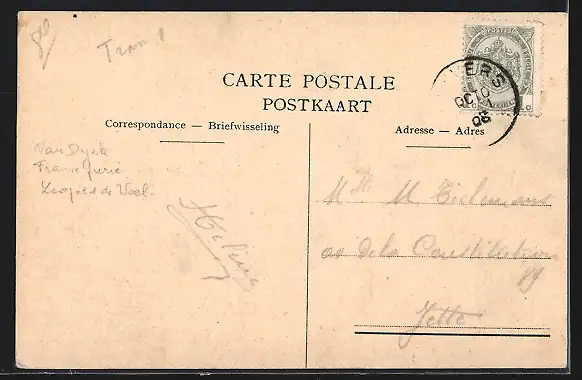 80
Tram 1
CARTE POSTALE
POSTKAART
Correspondance — Briefwisseling
Adresse — Adres
VERS
OCTO
06
Van Dyck
Leopold de Wael
Heline
Mlle M Tielemans
av de la Constitution
89
Jette